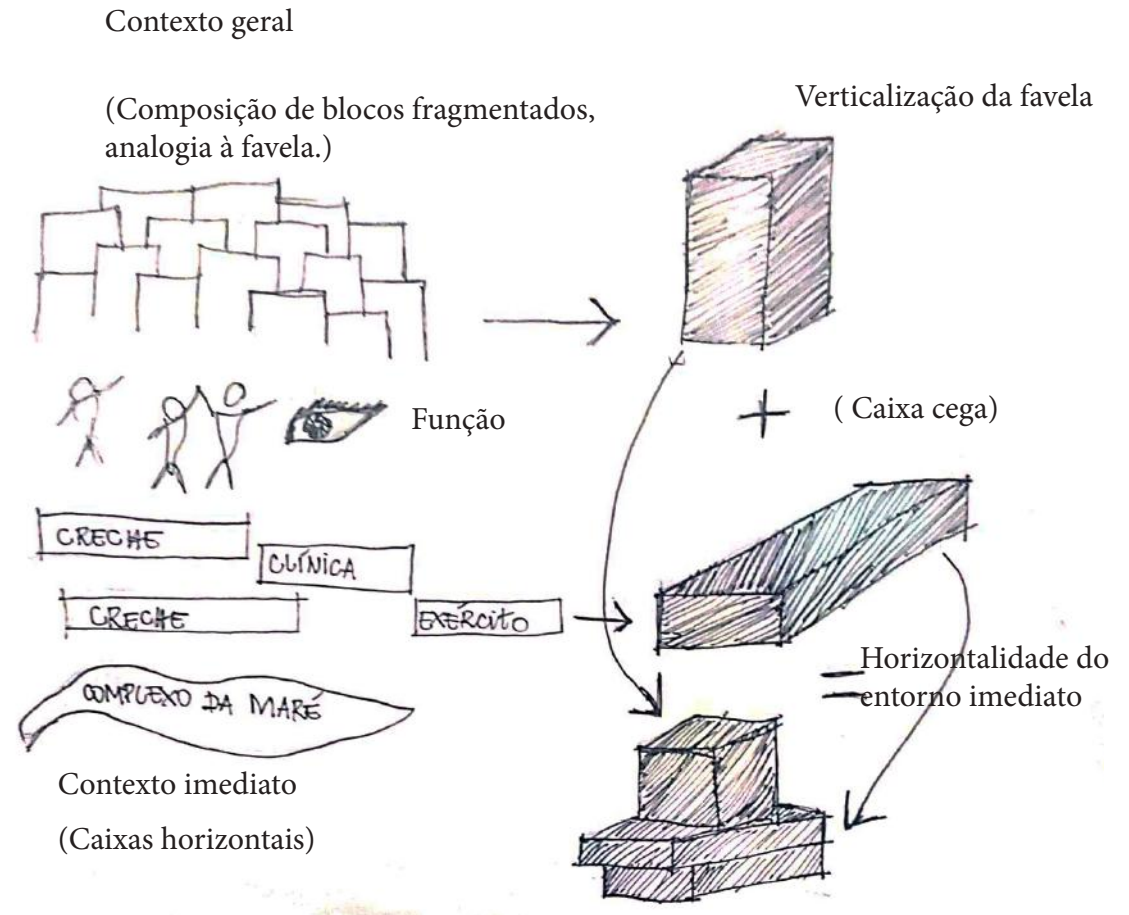 Contexto geral
(Composição de blocos fragmentados,
analogia à favela.)
Verticalização da favela
Função
( Caixa cega)
CRECHE
CLÍNICA
CRECHE
EXÉRCITO
COMPLEXO DA MARÉ
Horizontalidade do
entorno imediato
Contexto imediato
(Caixas horizontais)